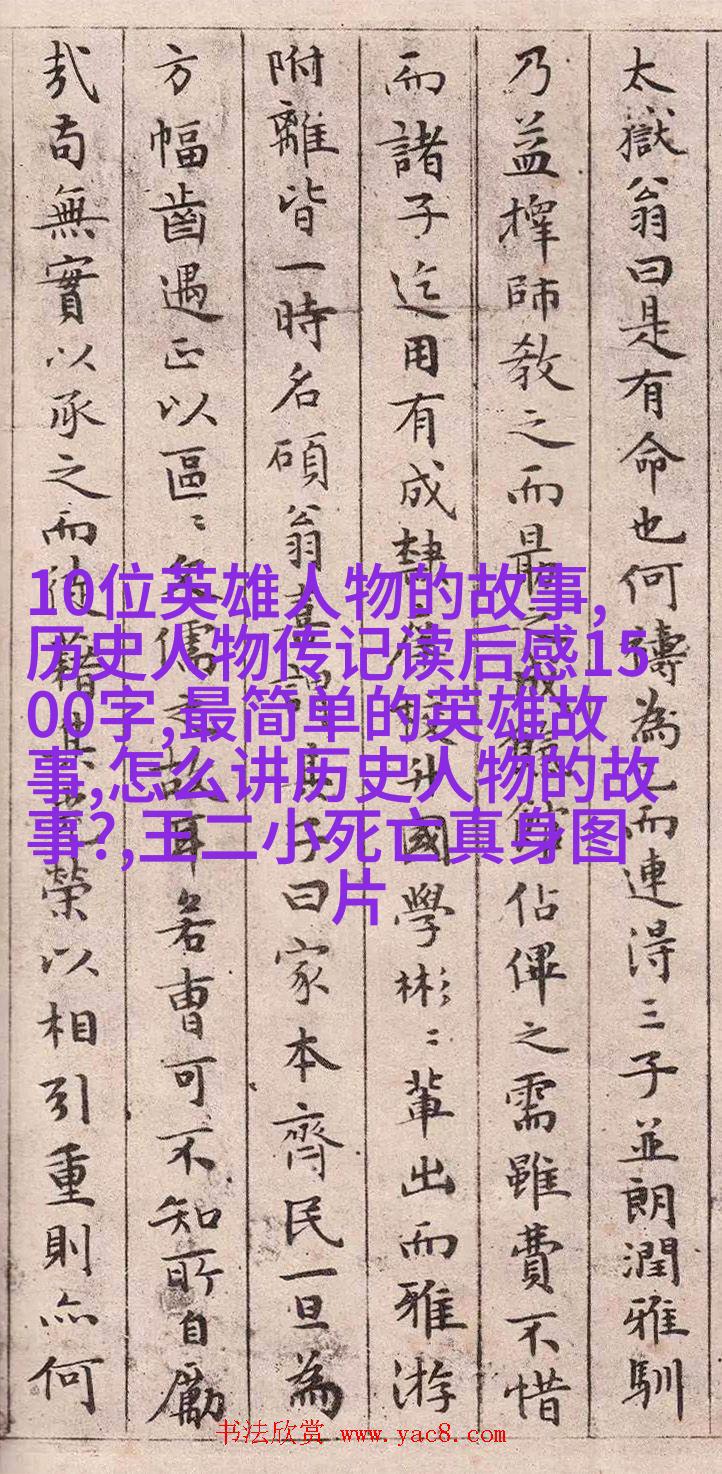 太嶽翁曰是有命也何禱為已而連得三子並朗潤雅馴
乃益擇師教之而最之成翩佔俾之需雖費不惜
而諸子迄用有成隸庠校升國學彬〻輩出而雅游
附離皆一時名碩翁喜謂其子曰家本齊民一旦為
方幅齒遇正以區〻名儒之故耳若曹可不知所自勵
哉苟無實以承之而徒藉其光榮以相引重則亦何
10位英雄人物的故事,
历史人物传记读后感15
00字,最简单的英雄故
事,怎么讲历史人物的故
事?,王二小死亡真身图
片
书法欣赏 www.yac8.com